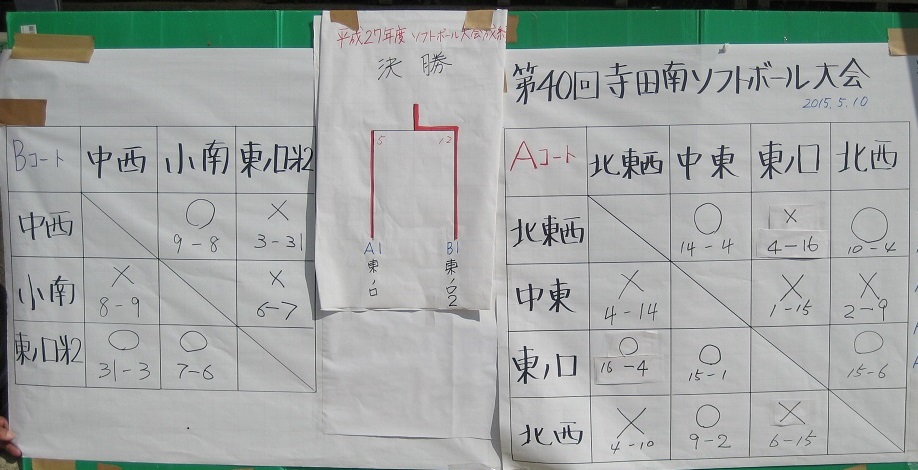 Bコート 中西 小南 東ノ口第2
中西 ○ ×
9-8 3-31
小南 × ×
8-9 6-7
東ノ口第2 ○ ○
31-3 7-6
平成27年度 ソフトボール大会
決勝
5 12
A1 B1
東ノ口 東ノ口2
第40回寺田南ソフトボール大会
2015.5.10
Aコート 北東西 中東 東ノ口 北西
北東西 ○ × ○
14-4 4-16 10-4
中東 × × ×
4-14 1-15 2-9
東ノ口 ○ ○ ○
16-4 15-1 15-6
北西 × ○ ×
4-10 9-2 6-15